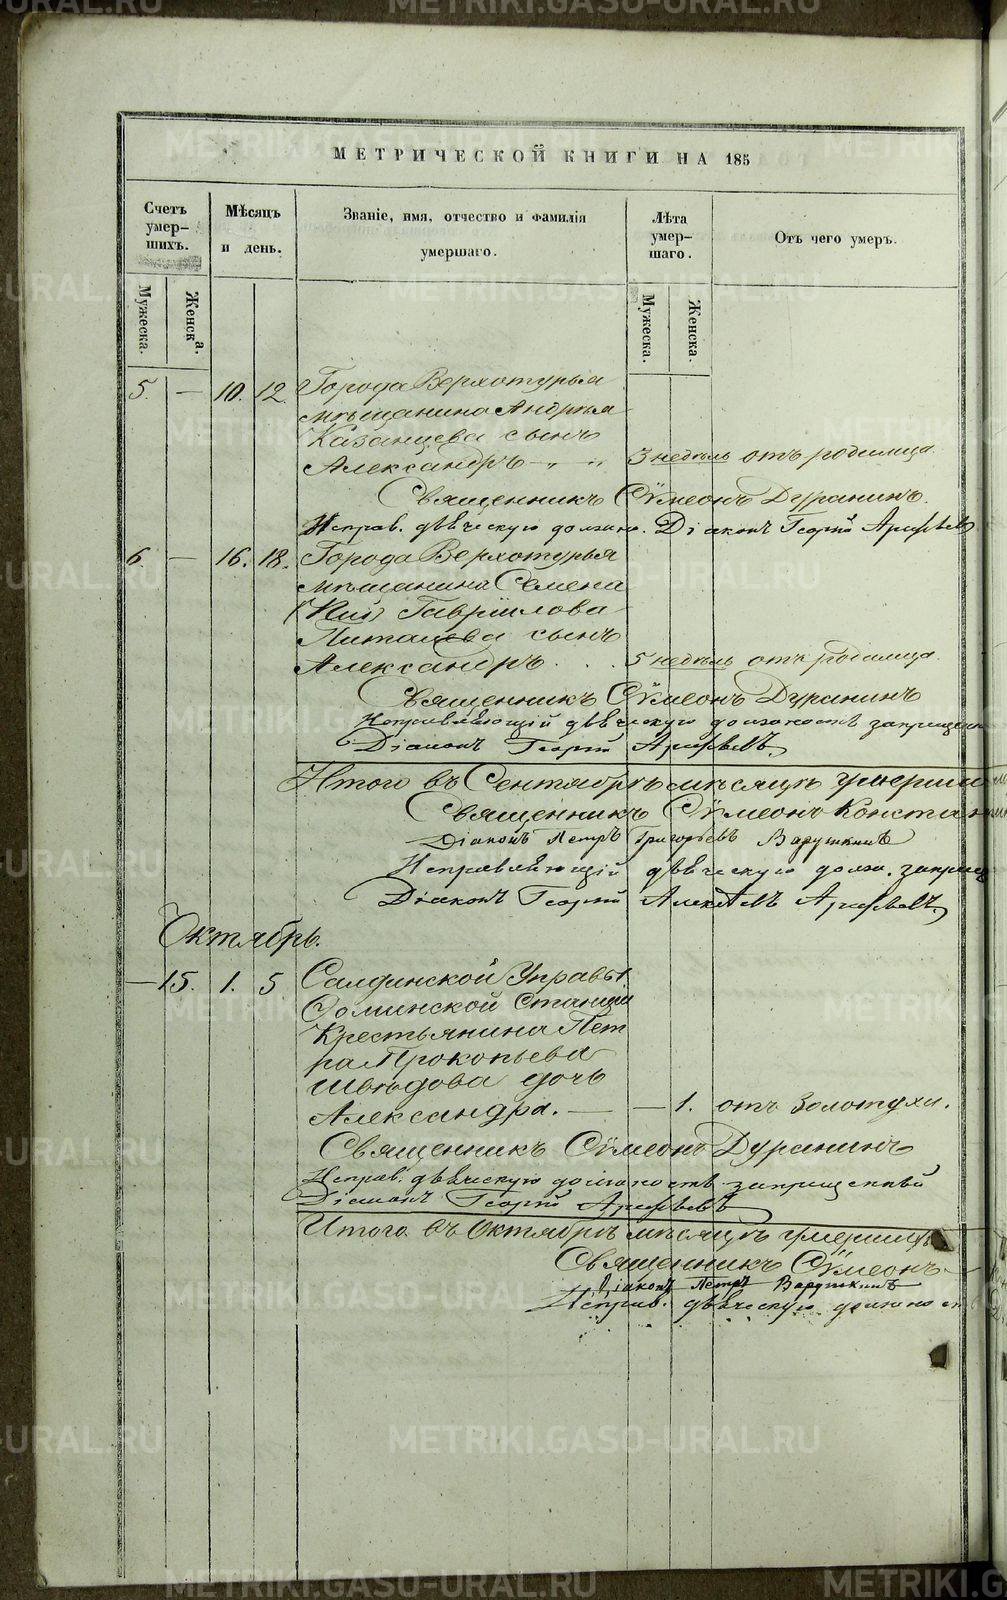 METRIKI.GASO-URAL.RU
МЕТРИЧЕСКОЙ КНИГИ НА 185
Счетъ умер-шихъ.
Мѣсяцъ и день.
Званіе, имя, отчество и фамилія умершаго.
Лѣта умер-шаго.
Отъ чего умеръ.
Мужеска.
Женска.
Мужеска.
Женска.
5. — 10. 12. Города Верхотурья
мѣщанина Андрея
Казанцева сынъ
Александръ 3 недѣль отъ родимца.
Священникъ Сѵмеонъ Дуранинъ.
Исправ. дьяческую должно. Діаконъ Георгій
6. — 16. 18. Города Верхотурья
мѣщанина Семена
Гаврілова
сынъ
Александръ . . . 5 недѣль отъ родимца.
Священникъ Сѵмеонъ Дуранинъ
Исправляющій дьяческую должность запрещен
Діаконъ Георгій
Итого въ Сентябрѣ мѣсяцѣ умерши
Священникъ Сѵмеонъ Констан
Діаконъ Петръ Григорьевъ Варушкинъ
Исправляющій дьяческую долж. запрещ
Діаконъ Георгій
Октябрь.
— 15. 1. 5 Салдинской Управы
Станицы
Крестьянина Пет
ра Прокопьева
Шведова дочь
Александра. — — 1. отъ золотухи.
Священникъ Сѵмеонъ Дуранинъ
Исправ. дьяческую должность запрещенный
Діаконъ Георгій
Итого въ Октябрѣ мѣсяцѣ умерши
Священникъ Сѵмеонъ
Діаконъ Петръ Варушкинъ
Исправ. дьяческую должност